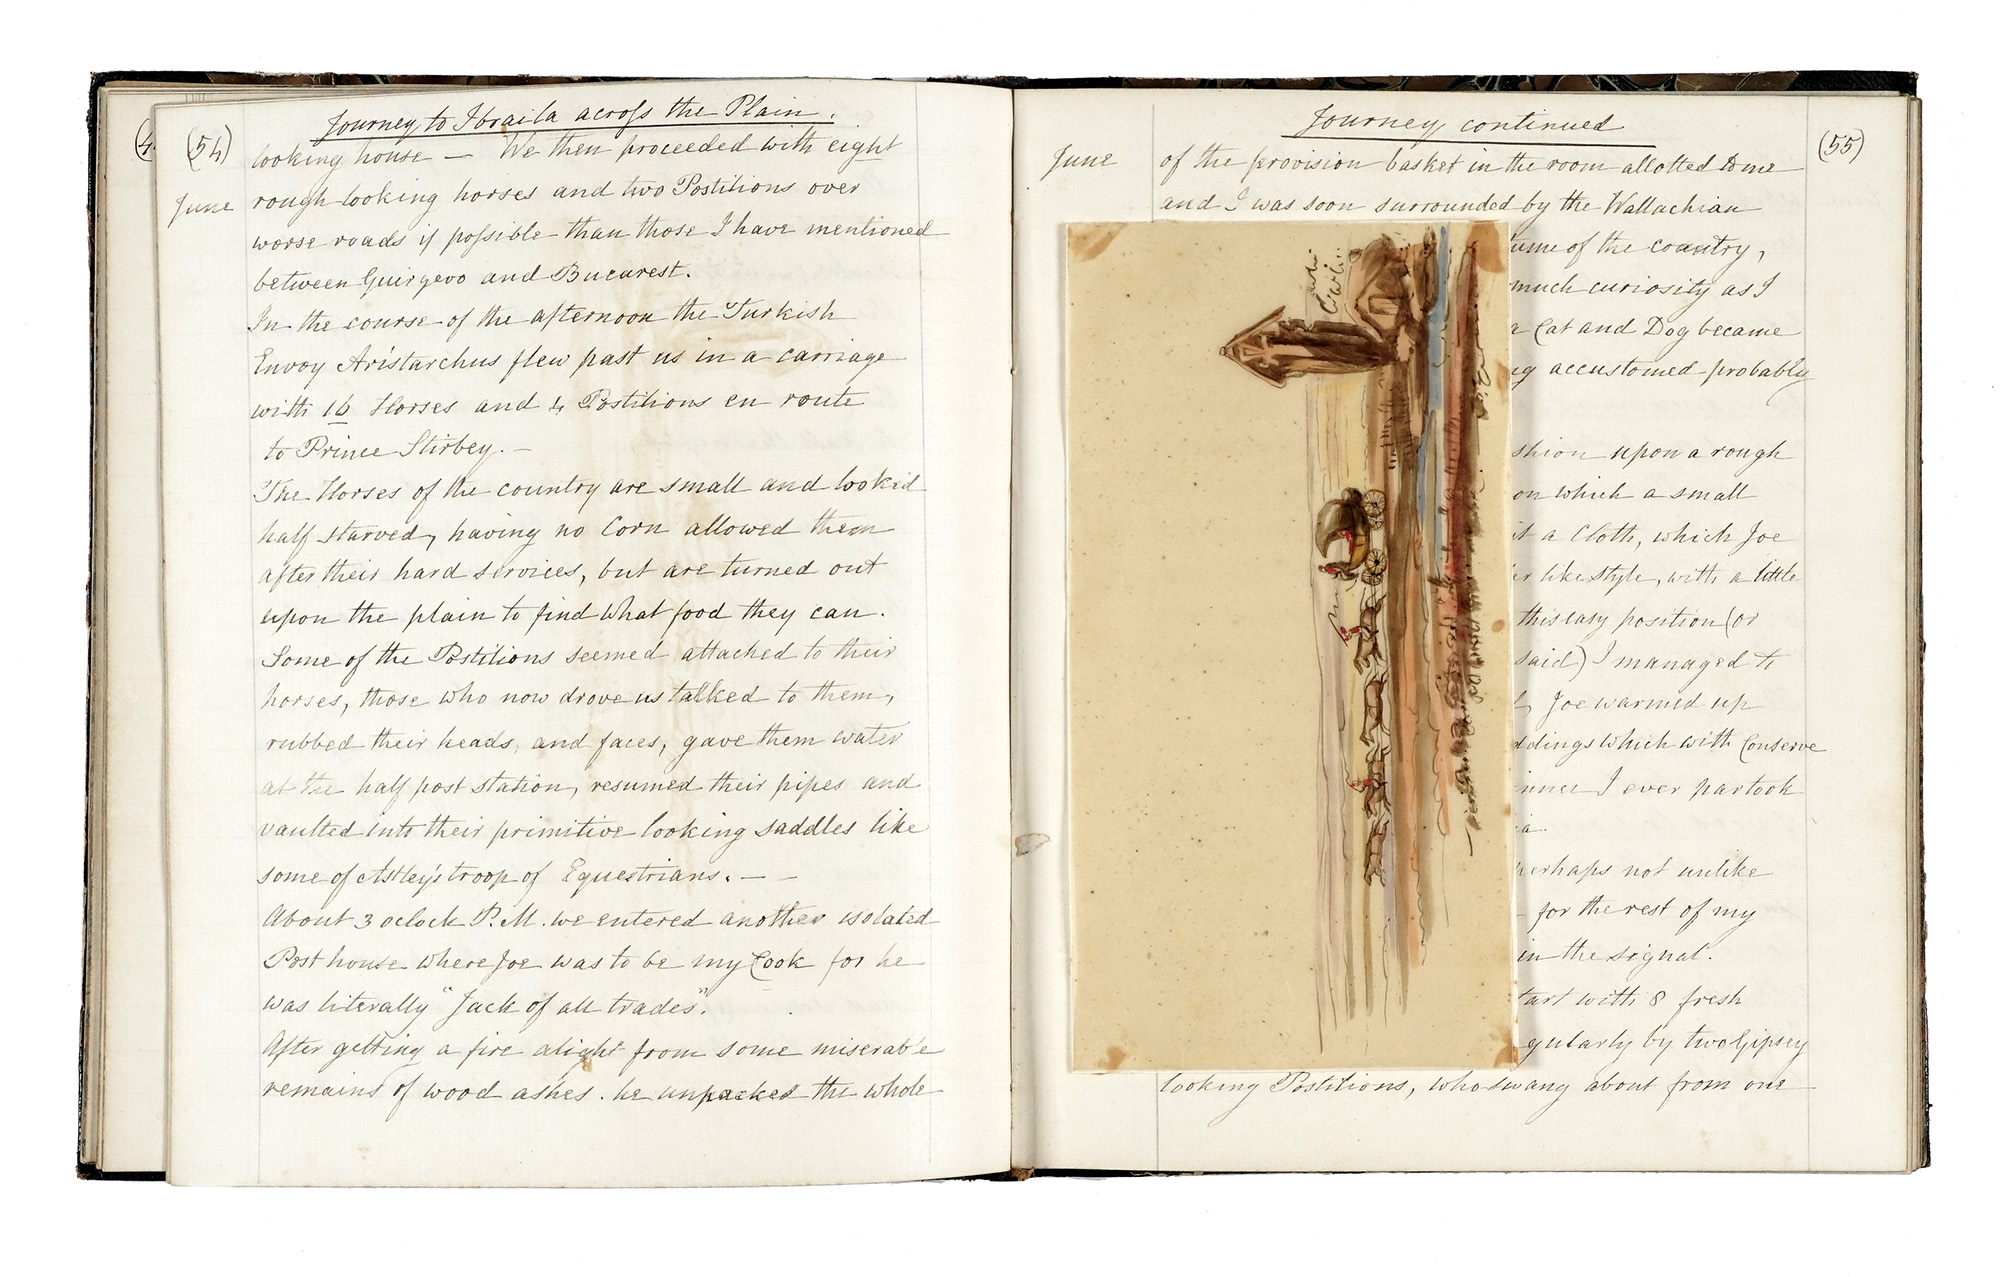 (54)
Journey to Ibraila across the Plain.
looking house — We then proceeded with eight
June
rough looking horses and two Postilions over
worse roads if possible than those I have mentioned
between Guirgevo and Bucarest.
In the course of the afternoon the Turkish
Envoy Aristarchus flew past us in a carriage
with 16 Horses and 4 Postilions en route
to Prince Stirbey. —
The Horses of the country are small and looked
half starved, having no Corn allowed them
after their hard services, but are turned out
upon the plain to find what food they can.
Some of the Postilions seemed attached to their
horses, those who now drove us talked to them,
rubbed their heads, and faces, gave them water
at the half post station, resumed their pipes and
vaulted into their primitive looking saddles like
some of Astley's troop of Equestrians. — —
About 3 oclock P.M. we entered another isolated
Post house where Joe was to be my Cook for he
was literally "Jack of all trades".
After getting a fire alight from some miserable
remains of wood ashes. he unpacked the whole
Journey continued
(55)
June
of the provision basket in the room allotted to me
and I was soon surrounded by the Wallachian
tume of the country,
much curiosity as I
Cat and Dog became
accustomed probably
shion upon a rough
on which a small
it a Cloth, which Joe
er like style, with a little
this easy position (or
said) I managed to
Joe warmed up
ddings which with Conserve
inner I ever partook
ia.
perhaps not unlike
– for the rest of my
in the signal.
tart with 8 fresh
gularly by two Gipsey
looking Postilions, who swang about from one